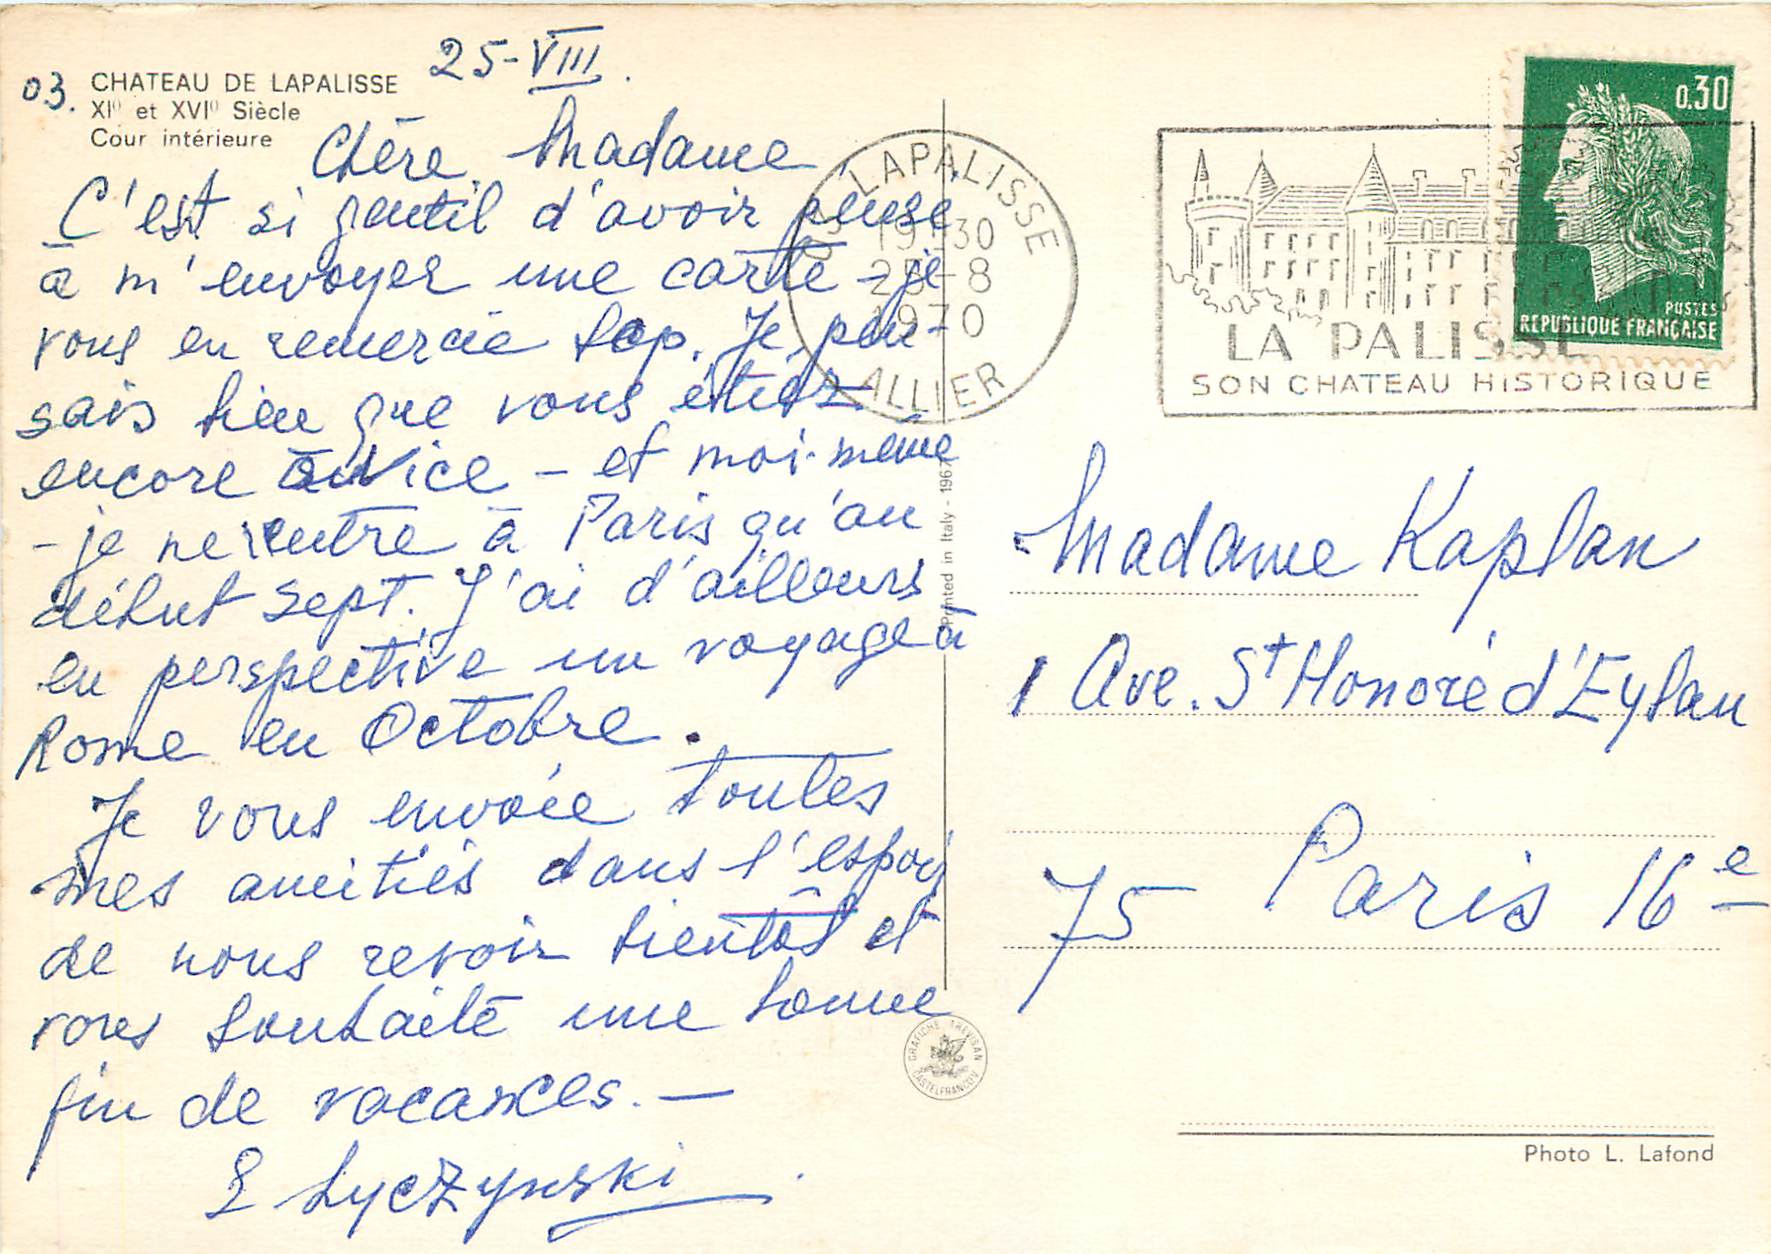 25-VIII.
03.
CHATEAU DE LAPALISSE
XIe et XVIe Siècle
Cour intérieure
Chère Madame
C'est si gentil d'avoir pensé
à m'envoyer une carte - je
vous en remercie bcp. Je pen-
sais bien que vous étiez
encore à Nice - et moi-même
- je ne rentre à Paris qu'au
début sept. J'ai d'ailleurs
en perspective un voyage à
Rome en Octobre.
Je vous envoie toutes
mes amitiés dans l'espoir
de nous revoir bientôt et
vous souhaite une bonne
fin de vacances. —
E Lyczynski
03 LAPALISSE
19H30
25-8
1970
ALLIER
LA PALISSE
SON CHATEAU HISTORIQUE
0.30
POSTES
REPUBLIQUE FRANÇAISE
Printed in Italy - 1967
Madame Kaplan
1 Ave. St Honoré d'Eylau
75 Paris 16e
GRAFICHE TREVISAN
CASTELFRANCO V.
Photo L. Lafond